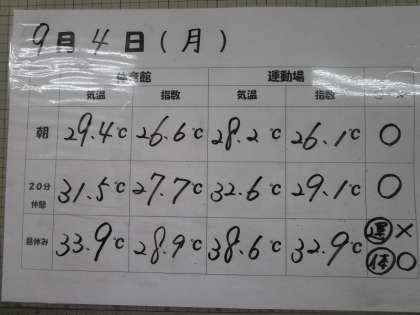 9月4日(月)
体育館 運動場
気温 指数 気温 指数 ○ ×
朝 29.4℃ 26.6℃ 28.2℃ 26.1℃ ○
20分休憩 31.5℃ 27.7℃ 32.6℃ 29.1℃ ○
昼休み 33.9℃ 28.9℃ 38.6℃ 32.9℃ 運 ×
体 ○